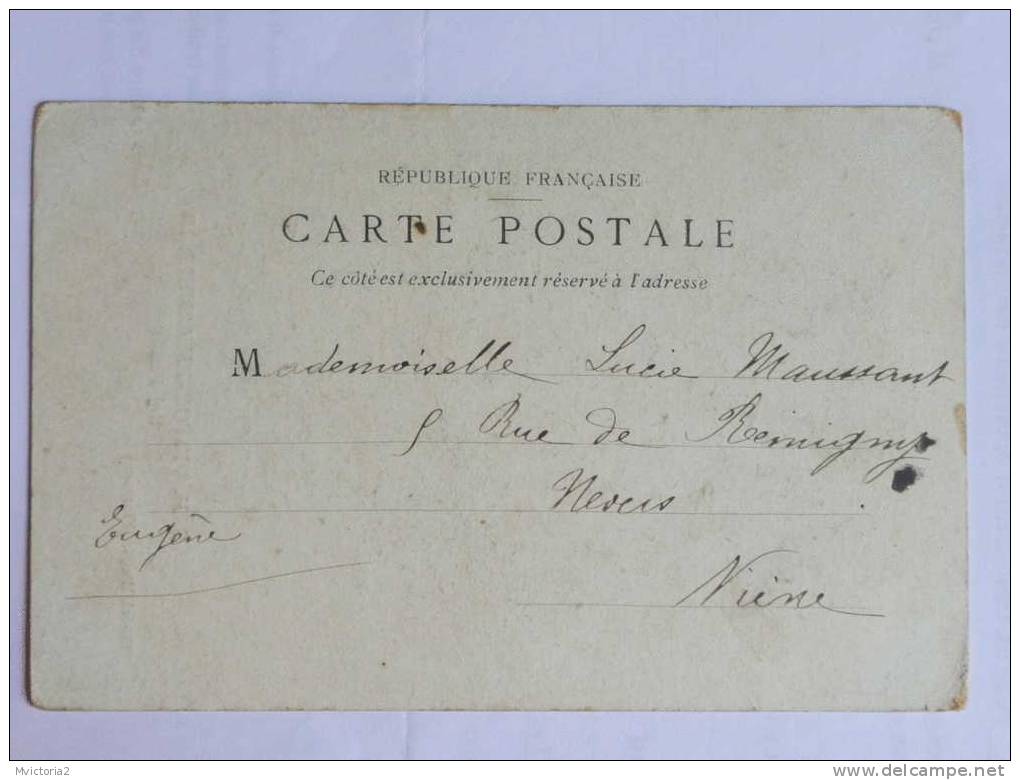 RÉPUBLIQUE FRANÇAISE
CARTE POSTALE
Ce côté est exclusivement réservé à l'adresse
Mademoiselle Lucie Maussant
5 Rue de Remigny
Nevers
Eugène
Nièvre
Mvictoria2
www.delcampe.net